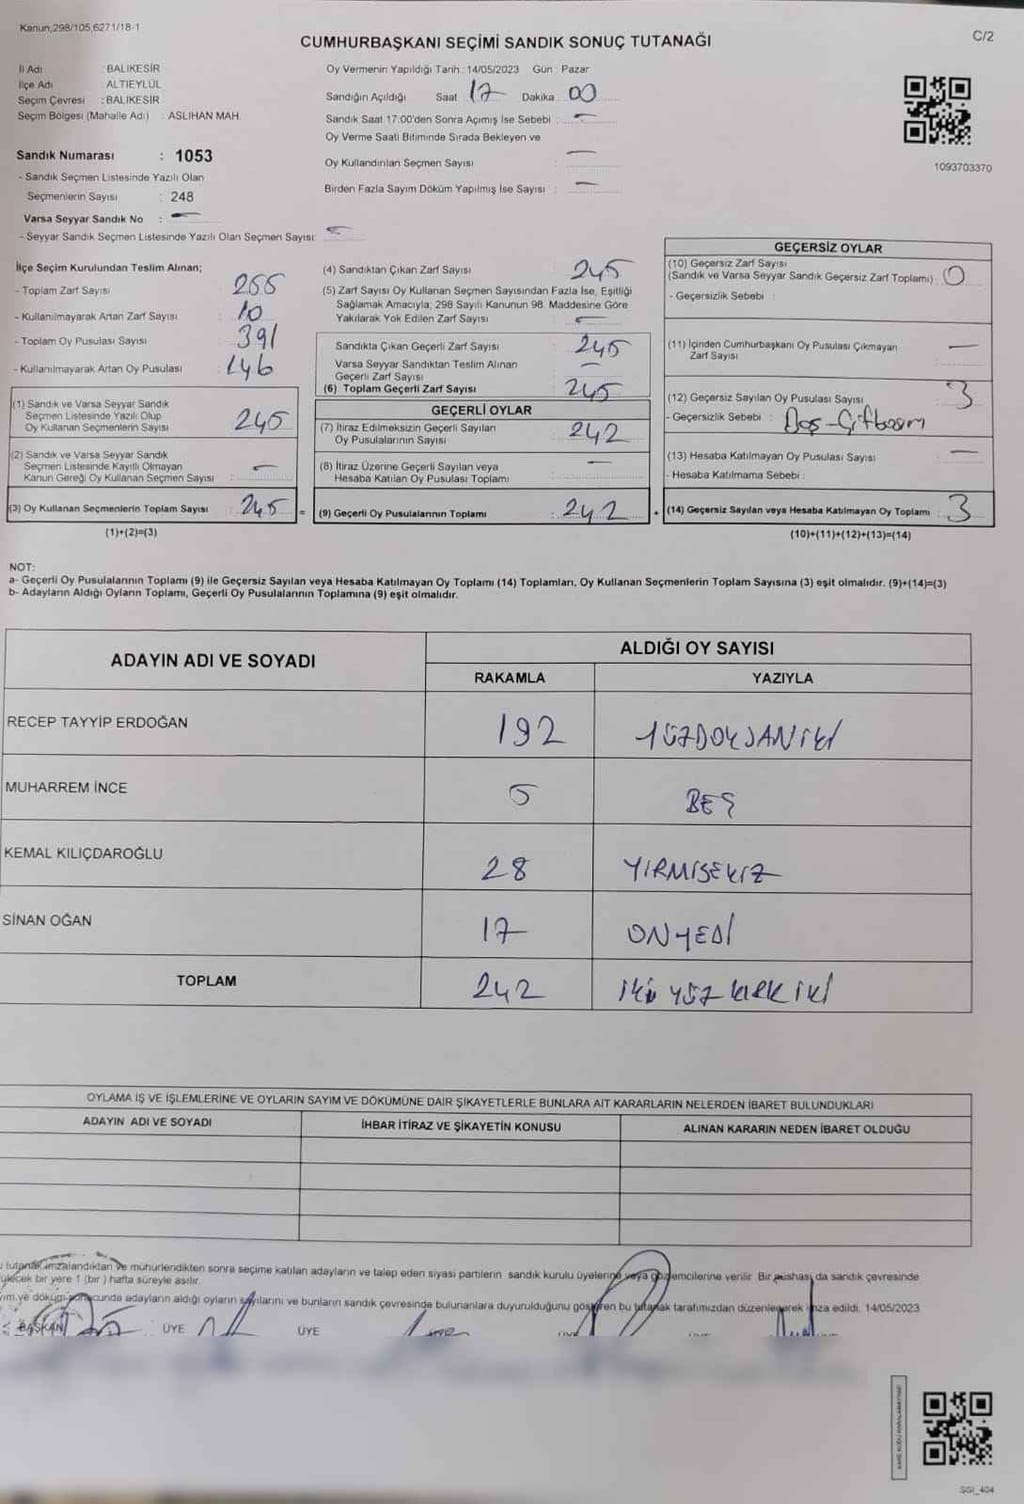 Kanun;298/105,6271/18-1
C/2
CUMHURBAŞKANI SEÇİMİ SANDIK SONUÇ TUTANAĞI
İl Adı : BALIKESİR
İlçe Adı : ALTIEYLÜL
Seçim Çevresi : BALIKESİR
Seçim Bölgesi (Mahalle Adı) : ASLIHAN MAH.
Sandık Numarası : 1053
- Sandık Seçmen Listesinde Yazılı Olan
Seçmenlerin Sayısı : 248
Varsa Seyyar Sandık No : -
- Seyyar Sandık Seçmen Listesinde Yazılı Olan Seçmen Sayısı: -
Oy Vermenin Yapıldığı Tarih : 14/05/2023 Gün : Pazar
Sandığın Açıldığı Saat 17 Dakika 00
Sandık Saat 17:00'den Sonra Açımış İse Sebebi : -
Oy Verme Saati Bitiminde Sırada Bekleyen ve
Oy Kullandırılan Seçmen Sayısı : -
Birden Fazla Sayım Döküm Yapılmış İse Sayısı : -
1093703370
İlçe Seçim Kurulundan Teslim Alınan;
- Toplam Zarf Sayısı : 255
- Kullanılmayarak Artan Zarf Sayısı : 10
- Toplam Oy Pusulası Sayısı : 391
- Kullanılmayarak Artan Oy Pusulası : 146
(1) Sandık ve Varsa Seyyar Sandık
Seçmen Listesinde Yazılı Olup
Oy Kullanan Seçmenlerin Sayısı : 245
(2) Sandık ve Varsa Seyyar Sandık
Seçmen Listesinde Kayıtlı Olmayan
Kanun Gereği Oy Kullanan Seçmen Sayısı : -
(3) Oy Kullanan Seçmenlerin Toplam Sayısı : 245 =
(1)+(2)=(3)
(4) Sandıktan Çıkan Zarf Sayısı 245
(5) Zarf Sayısı Oy Kullanan Seçmen Sayısından Fazla İse, Eşitliği
Sağlamak Amacıyla; 298 Sayılı Kanunun 98. Maddesine Göre
Yakılarak Yok Edilen Zarf Sayısı : -
Sandıkta Çıkan Geçerli Zarf Sayısı : 245
Varsa Seyyar Sandıktan Teslim Alınan
Geçerli Zarf Sayısı : -
(6) Toplam Geçerli Zarf Sayısı : 245
GEÇERLİ OYLAR
(7) İtiraz Edilmeksizin Geçerli Sayılan
Oy Pusulalarının Sayısı : 242
(8) İtiraz Üzerine Geçerli Sayılan veya
Hesaba Katılan Oy Pusulası Toplamı : -
(9) Geçerli Oy Pusulalarının Toplamı : 242 +
GEÇERSİZ OYLAR
(10) Geçersiz Zarf Sayısı
(Sandık ve Varsa Seyyar Sandık Geçersiz Zarf Toplamı) : 0
- Geçersizlik Sebebi :
(11) İçinden Cumhurbaşkanı Oy Pusulası Çıkmayan
Zarf Sayısı -
(12) Geçersiz Sayılan Oy Pusulası Sayısı : 3
- Geçersizlik Sebebi : Boş-Çiftbasım
(13) Hesaba Katılmayan Oy Pusulası Sayısı : -
- Hesaba Katılmama Sebebi :
(14) Geçersiz Sayılan veya Hesaba Katılmayan Oy Toplamı : 3
(10)+(11)+(12)+(13)=(14)
NOT:
a- Geçerli Oy Pusulalarının Toplamı (9) ile Geçersiz Sayılan veya Hesaba Katılmayan Oy Toplamı (14) Toplamları, Oy Kullanan Seçmenlerin Toplam Sayısına (3) eşit olmalıdır. (9)+(14)=(3)
b- Adayların Aldığı Oyların Toplamı, Geçerli Oy Pusulalarının Toplamına (9) eşit olmalıdır.
ADAYIN ADI VE SOYADI
ALDIĞI OY SAYISI
RAKAMLA YAZIYLA
RECEP TAYYİP ERDOĞAN 192 YÜZDOKSANİKİ
MUHARREM İNCE 5 BEŞ
KEMAL KILIÇDAROĞLU 28 YİRMİSEKİZ
SİNAN OĞAN 17 ONYEDİ
TOPLAM 242 İKİ YÜZ KIRK İKİ
OYLAMA İŞ VE İŞLEMLERİNE VE OYLARIN SAYIM VE DÖKÜMÜNE DAİR ŞİKAYETLERLE BUNLARA AİT KARARLARIN NELERDEN İBARET BULUNDUKLARI
ADAYIN ADI VE SOYADI İHBAR İTİRAZ VE ŞİKAYETİN KONUSU ALINAN KARARIN NEDEN İBARET OLDUĞU
tutanak imzalandıktan ve mühürlendikten sonra seçime katılan adayların ve talep eden siyasi partilerin sandık kurulu üyelerine veya gözlemcilerine verilir. Bir nüshası da sandık çevresinde
bir yere 1 (bir) hafta süreyle asılır.
ve döküm sonucunda adayların aldığı oyların sayılarını ve bunların sandık çevresinde bulunanlara duyurulduğunu gösteren bu tutanak tarafımızdan düzenlenerek imza edildi. 14/05/2023
BAŞKAN ÜYE ÜYE
SSI_404